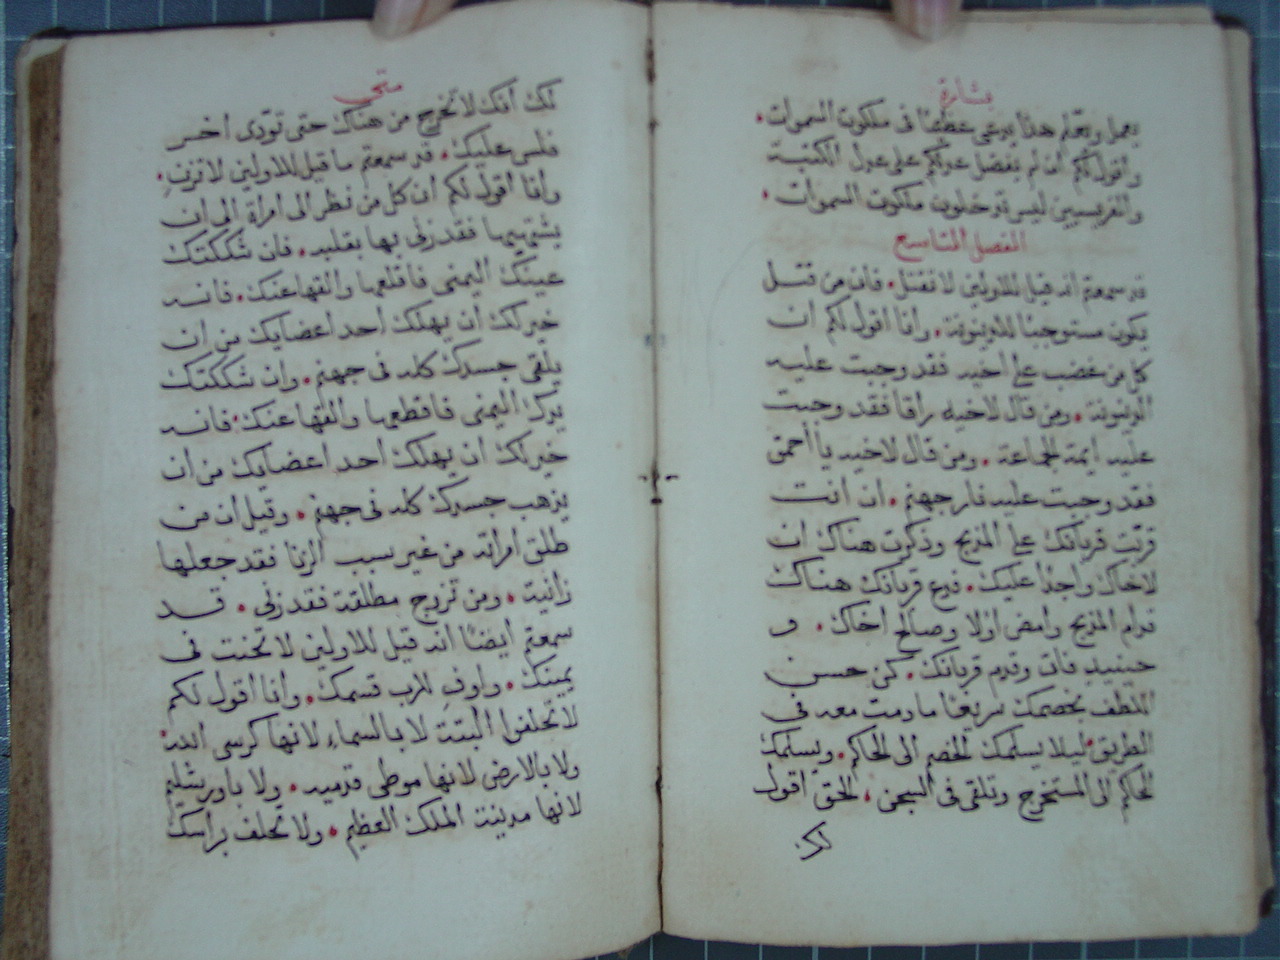 بشارة
يعمل ويعلم هذا يدعى عظيمًا فى ملكوت السموات.
واقول لكم ان لم يفضل عدلكم على عدل الكتبة
والفريسيين ليس تدخلون ملكوت السموات.
الفصل التاسع
قد سمعتم انه قيل للاولين لا تقتل. فان من قتل
يكون مستوجبًا للدينونة. وانا اقول لكم ان
كل من غضب على اخيه فقد وجبت عليه
الدينونة. ومن قال لاخيه راقا فقد وجبت
عليه ايمة الجماعة. ومن قال لاخيه يا احمق
فقد وجبت عليه نار جهنم. ان انت
قربّت قربانك على المذبح وذكرت هناك ان
لاخاك واجدًا عليك. فدع قربانك هناك
قدام المذبح وامض اولا وصالح اخاك. و
حينيذٍ فات وقدم قربانك. كن حسن
اللطف بخصمك سريعًا ما دمت معه فى
الطريق. ليلا يسلمك الخصم الى الحاكم. ويسلمك
الحاكم الى المستخرج وتلقى فى السجن. الحق اقول
لك
متى
لك انك لا تخرج من هناك حتى تودى اخر
فلس عليك. قد سمعتم ما قيل للاولين لا تزنِ.
وانا اقول لكم ان كل من نظر الى امراة الى ان
يشتهيها فقد زنى بها بقلبه. فان شككتك
عينك اليمنى فاقلعها والقها عنك. فانه
خير لك ان يهلك احد اعضايك من ان
يلقى جسدك كله فى جهنم. وان شككتك
يدك اليمنى فاقطعها والقها عنك. فانه
خير لك ان يهلك احد اعضايك من ان
يذهب جسدك كله فى جهنم. وقيل ان من
طلق امراته من غير سبب الزنا فقد جعلها
زانية. ومن تزوج مطلقة فقد زنى. قد
سمعتم ايضًا انه قيل للاولين لا تحنت فى
يمينك. واوفِ للرب قسمك. وانا اقول لكم
لا تحلفوا البتة لا بالسماء لانها كرسى الله.
ولا بالارض لانها موطى قدميه. ولا باورشليم
لانها مدينة الملك العظيم. ولا تحلف براسك